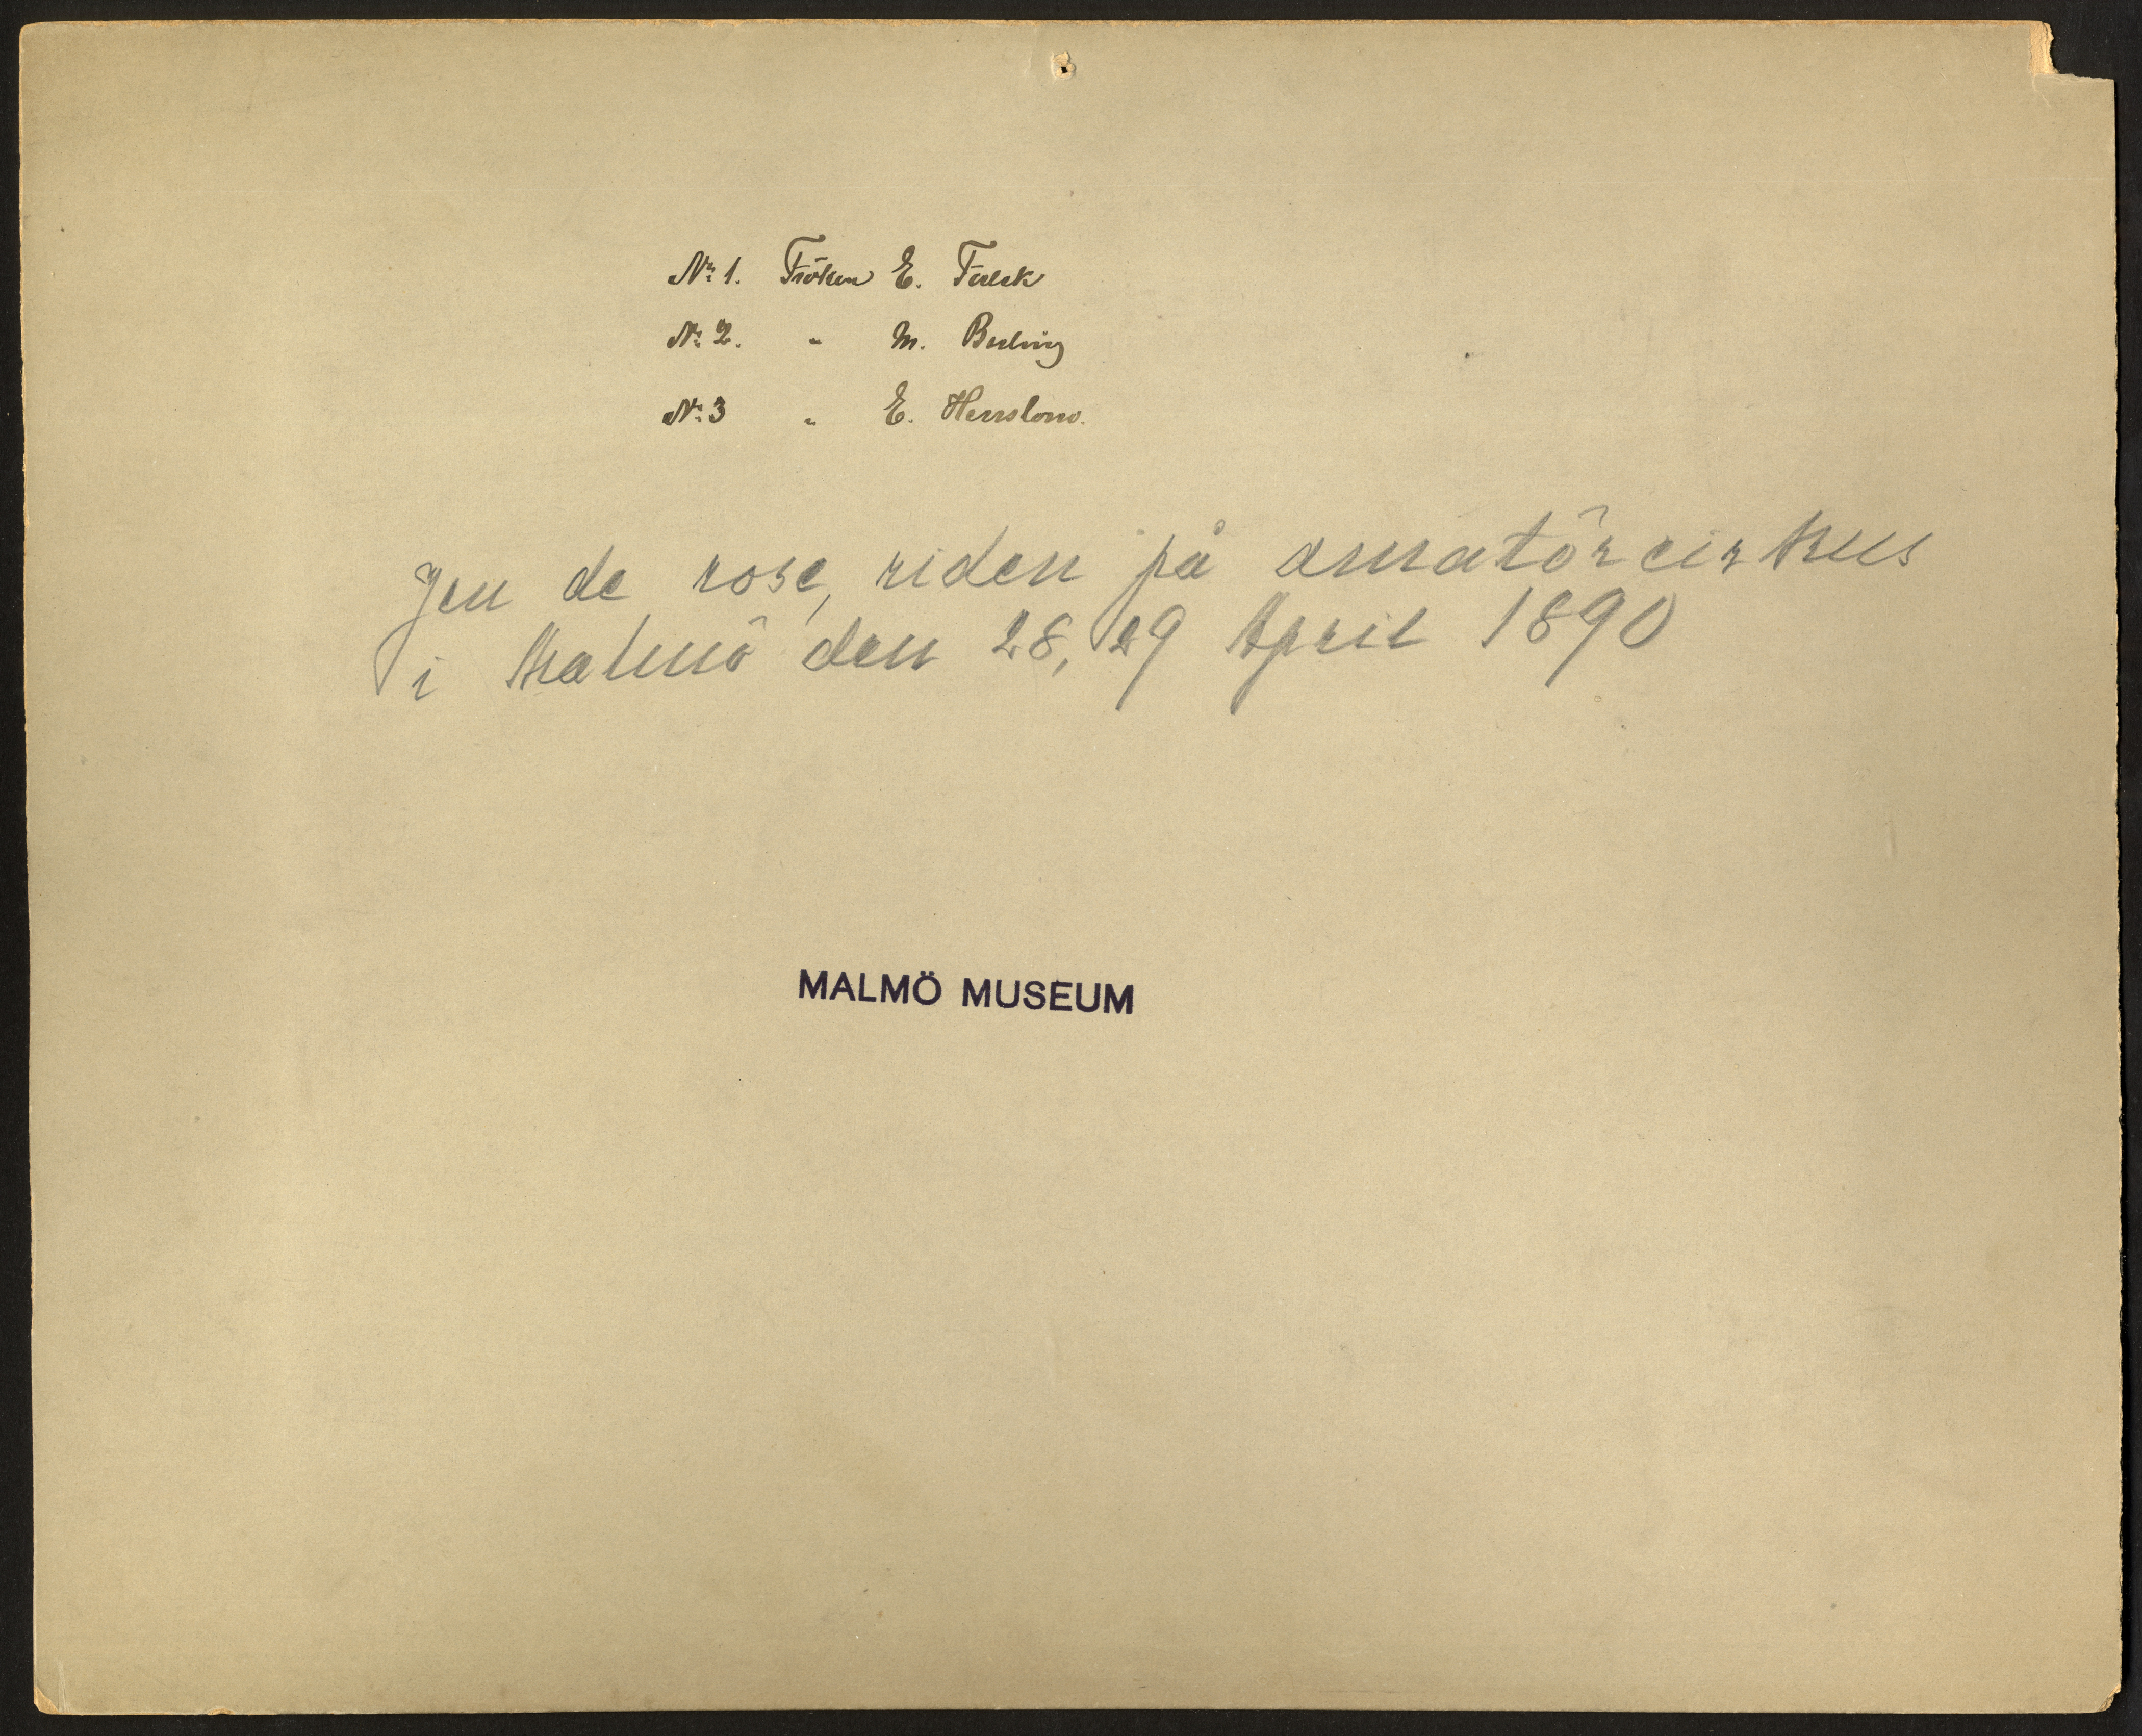 No 1. Fröken E. Falck
No 2. " M. Berling
No 3 " E. Herslow.
Jeu de rose, riden på amatörcirkus
i Malmö den 28, 29 April 1890
MALMÖ MUSEUM